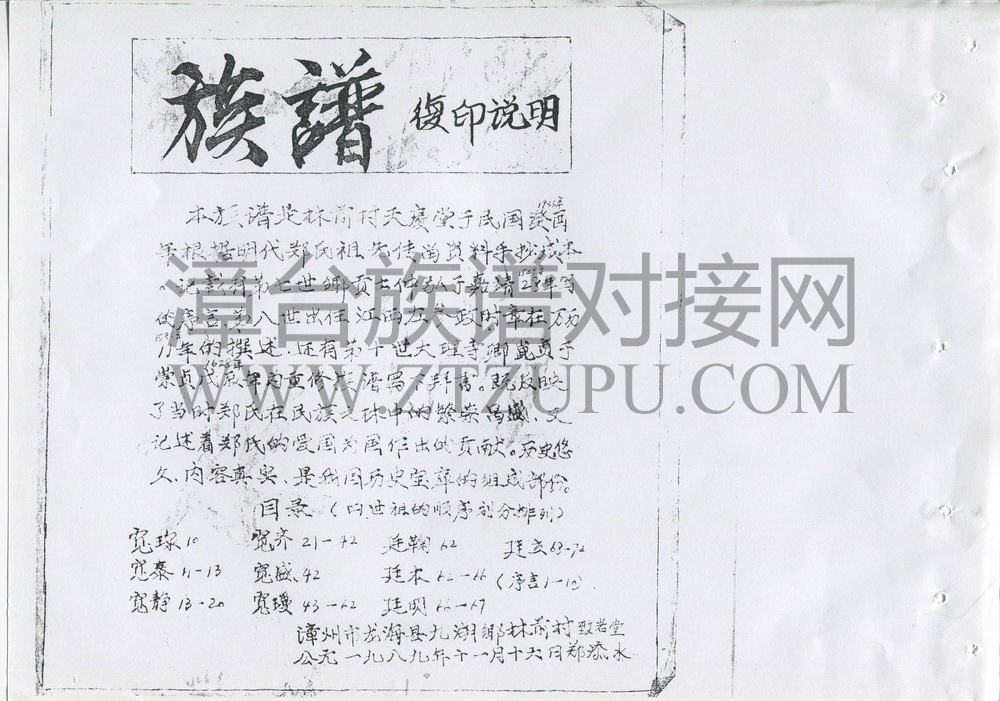 族譜 復印说明
本族谱是林前村天庆堂于民国癸酉
1933年
年根据明代郑氏祖先传留资料手抄成本
记载有第七世乡贡士仲弘于嘉靖28年写
的序言、第八世 任江西右参政时章在万历
11年的撰述、还有第十世大理寺卿崑贞于
崇贞戊辰年为重修族谱写下拜书。既反映
1628年
了当时郑氏在民族之林中的繁荣昌盛、又
记述着郑氏的爱国为国作出的贡献。历史悠
久、内容真实、是我国历史宝库的组成部份。
目录(四世祖的顺序划分排列)
宽琮10 宽齐21-42 廷鞠62 廷 68-72
宽泰11-13 宽盛42 廷本62-66 (序言1-10)
宽静13-20 宽瓊43-62 廷明66-67
漳州市龙海县九湖乡林前村致若堂
公元一九八九年十一月十六日郑添水
漳台族谱对接网
WWW.ZTZUPU.COM